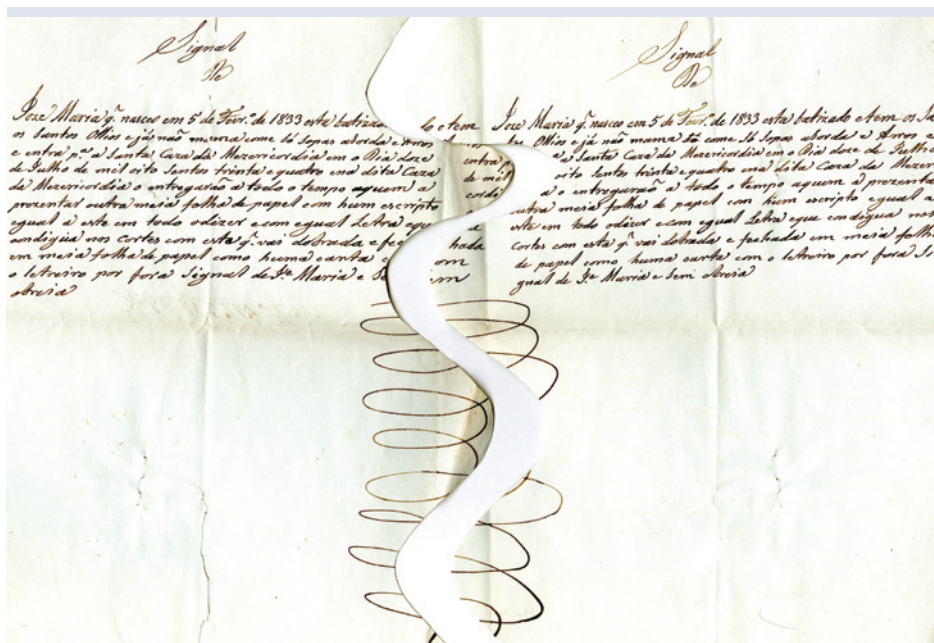 Signal
De
Joze Maria q. nasceo em 5 de Fevr. de 1833 esta batizado e tem
os Santos Ollios e já não mama come só sopas aborda e Arros
e entra p.ª a Santa Caza da Mezericordia em o Dia doze
de Julho de mil oito Sentos trinta e quatro e na dita Caza
da Mezericordia o entregarão a todo o tempo aquem a
prezentar outra meia folha de papel com hum escripto
egual a este em todo odizer e com egual Letra e que
condigua nos cortes com esta q. vai dobrada e fechada
em meia folha de papel como huma carta com
o letreiro por fora Signal de Je Maria e Sem
Areia
Signal
De
Joze Maria q. nasceo em 5 de Fevr. de 1833 esta batizado e tem os
Olios e já não mama tó come Só Sopas aborda e Arros e
entra p.ª a Santa Caza da Mezericordia em o Dia doze de Julho
de mil oito Sentos trinta e quatro e na dita Caza da
o entregarão a todo o tempo aquem a prezentar
outra meia folha de papel com hum escripto egual a
este em todo odizer e com egual Letra e que condigua nos
Cortes com esta q. vai dobrada e fechada em meia folha
de papel como huma carta com o letreiro por fora Si
gnal de Je Maria e Sem Areia